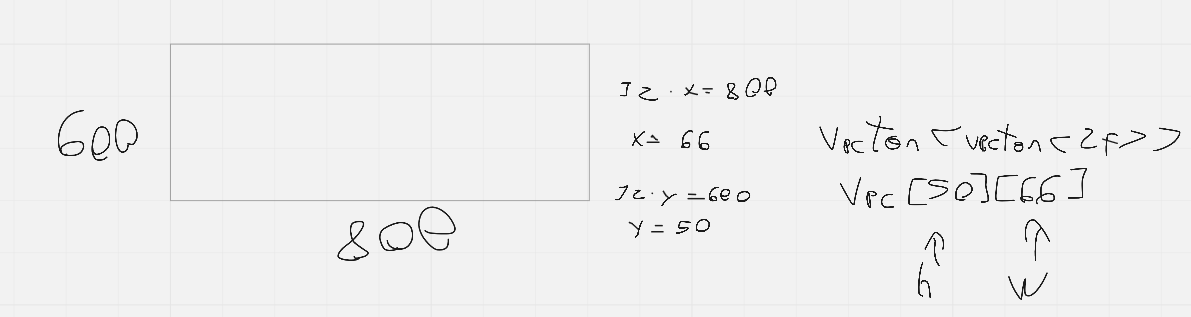 600
800
12 · x = 800
x = 66
12 · y = 600
y = 50
Vector < vector < 2f > >
Vec [50][66]
h
W